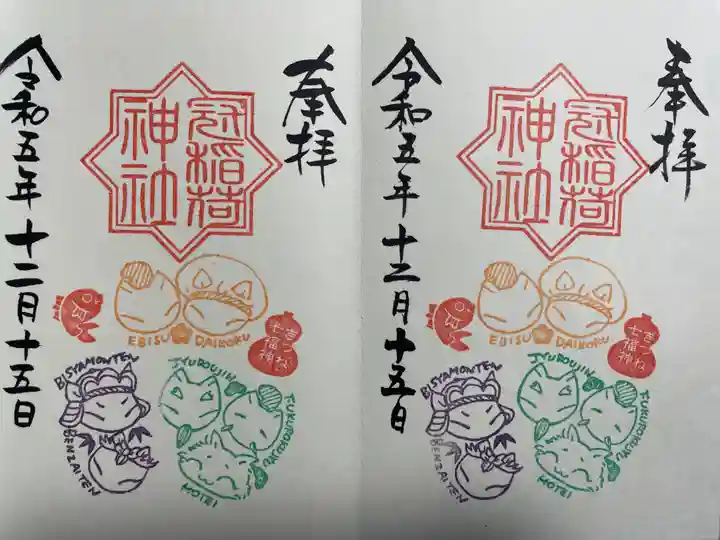 奉拝
冠稲荷
神社
令和五年十二月十五日
EBISU
DAIKOKU
きつね
七福神
BISYAMONTEN
JYUROUJIN
FUKUROKUJYU
BENZAITEN
HOTEI
奉拝
冠稲荷
神社
令和五年十二月十五日
EBISU
DAIKOKU
きつね
七福神
BISYAMONTEN
JYUROUJIN
FUKUROKUJYU
BENZAITEN
HOTEI